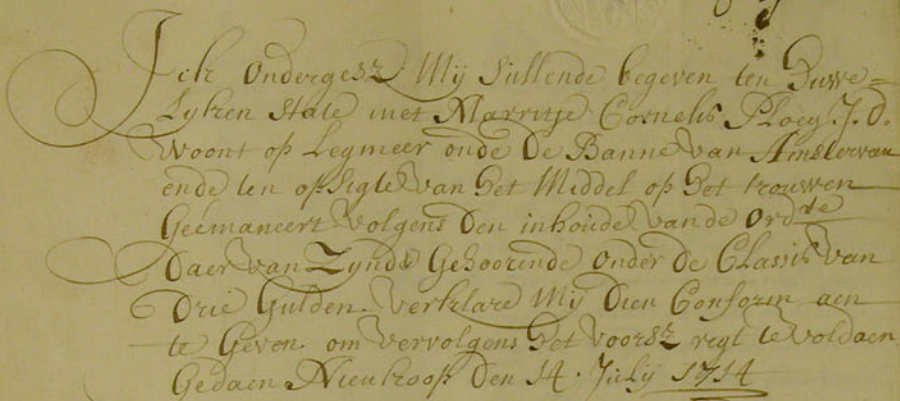 Ick Ondergesz Mij Sullende begeven ten Huwe=
Lyken State met Marritje Cornelis Ploey. J. D.
Woont op Legmeer onde De Banne van Amstervaen
ende ten opsigte van Het Middel op Het trouwen
Geëmaneert volgens Den inhoude vande Ordtie
Daer van Zynde Gehoorende onder de Classis van
Drie Gulden. verklare Mij Dien Conform aen
te Geven. om vervolgens Het voorsz regt te voldaen
Gedaen Nieukoop Den 14. Julij 1714